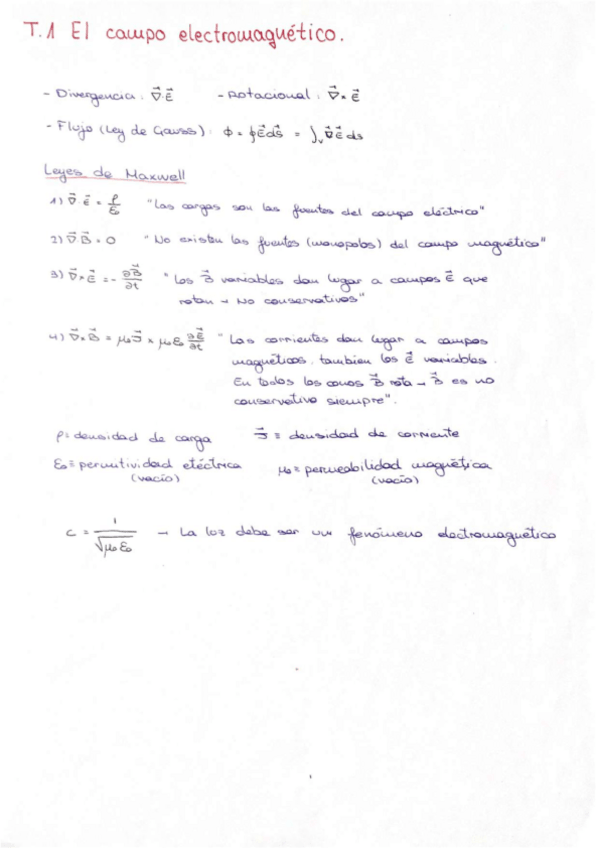 T.1 El campo electromagnético.
- Divergencia: ∇⃗·E⃗ - Rotacional: ∇⃗×E⃗
- Flujo (Ley de Gauss): Φ = ∮E⃗ds⃗ = ∫ᵥ∇⃗E⃗ds
Leyes de Maxwell
1) ∇⃗·E⃗ = ρ/ε₀ "Las cargas son las fuentes del campo eléctrico"
2) ∇⃗B⃗ = 0 "No existen las fuentes (monopolos) del campo magnético"
3) ∇⃗×E⃗ = -∂B⃗/∂t "Los B⃗ variables dan lugar a campos E⃗ que
rotan → No conservativos"
4) ∇⃗×B⃗ = μ₀J⃗ × μ₀ε₀ ∂E⃗/∂t "Las corrientes dan lugar a campos
magnéticos, tambien los E⃗ variables.
En todos los casos B⃗ rota → B⃗ es no
conservativo siempre".
ρ ≡ densidad de carga J⃗ ≡ densidad de corriente
ε₀ ≡ permitividad eléctrica μ₀ ≡ permeabilidad magnética
(vacío) (vacío)
c = 1/√μ₀ε₀ → La luz debe ser un fenómeno electromagnético
1